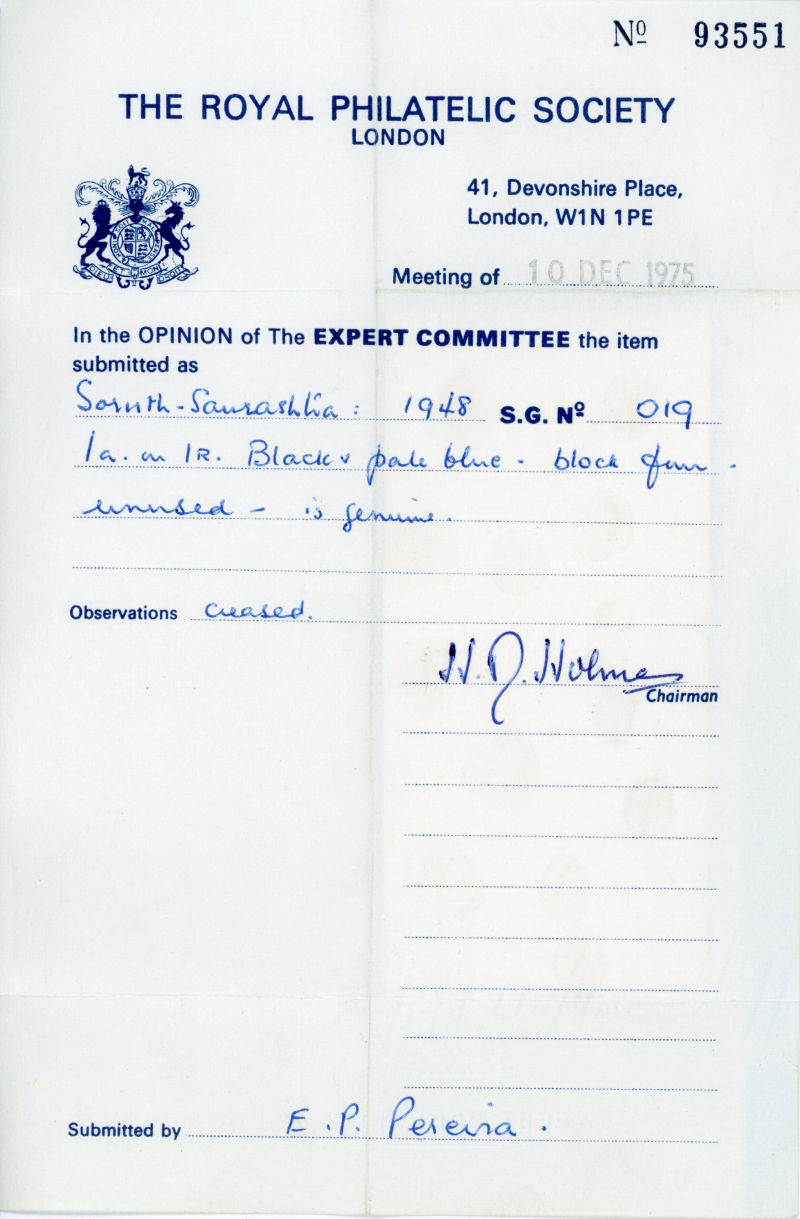 Nº 93551
THE ROYAL PHILATELIC SOCIETY
LONDON
41, Devonshire Place,
London, W1N 1PE
Meeting of 10 DEC 1975
In the OPINION of The EXPERT COMMITTEE the item
submitted as
Soruth-Saurashtra: 1948 S.G. Nº 019
1a. on 1R. Black & pale blue - block four -
unused - is genuine.
Observations creased.
H. D. Holmes
Chairman
Submitted by E.P. Pereira.